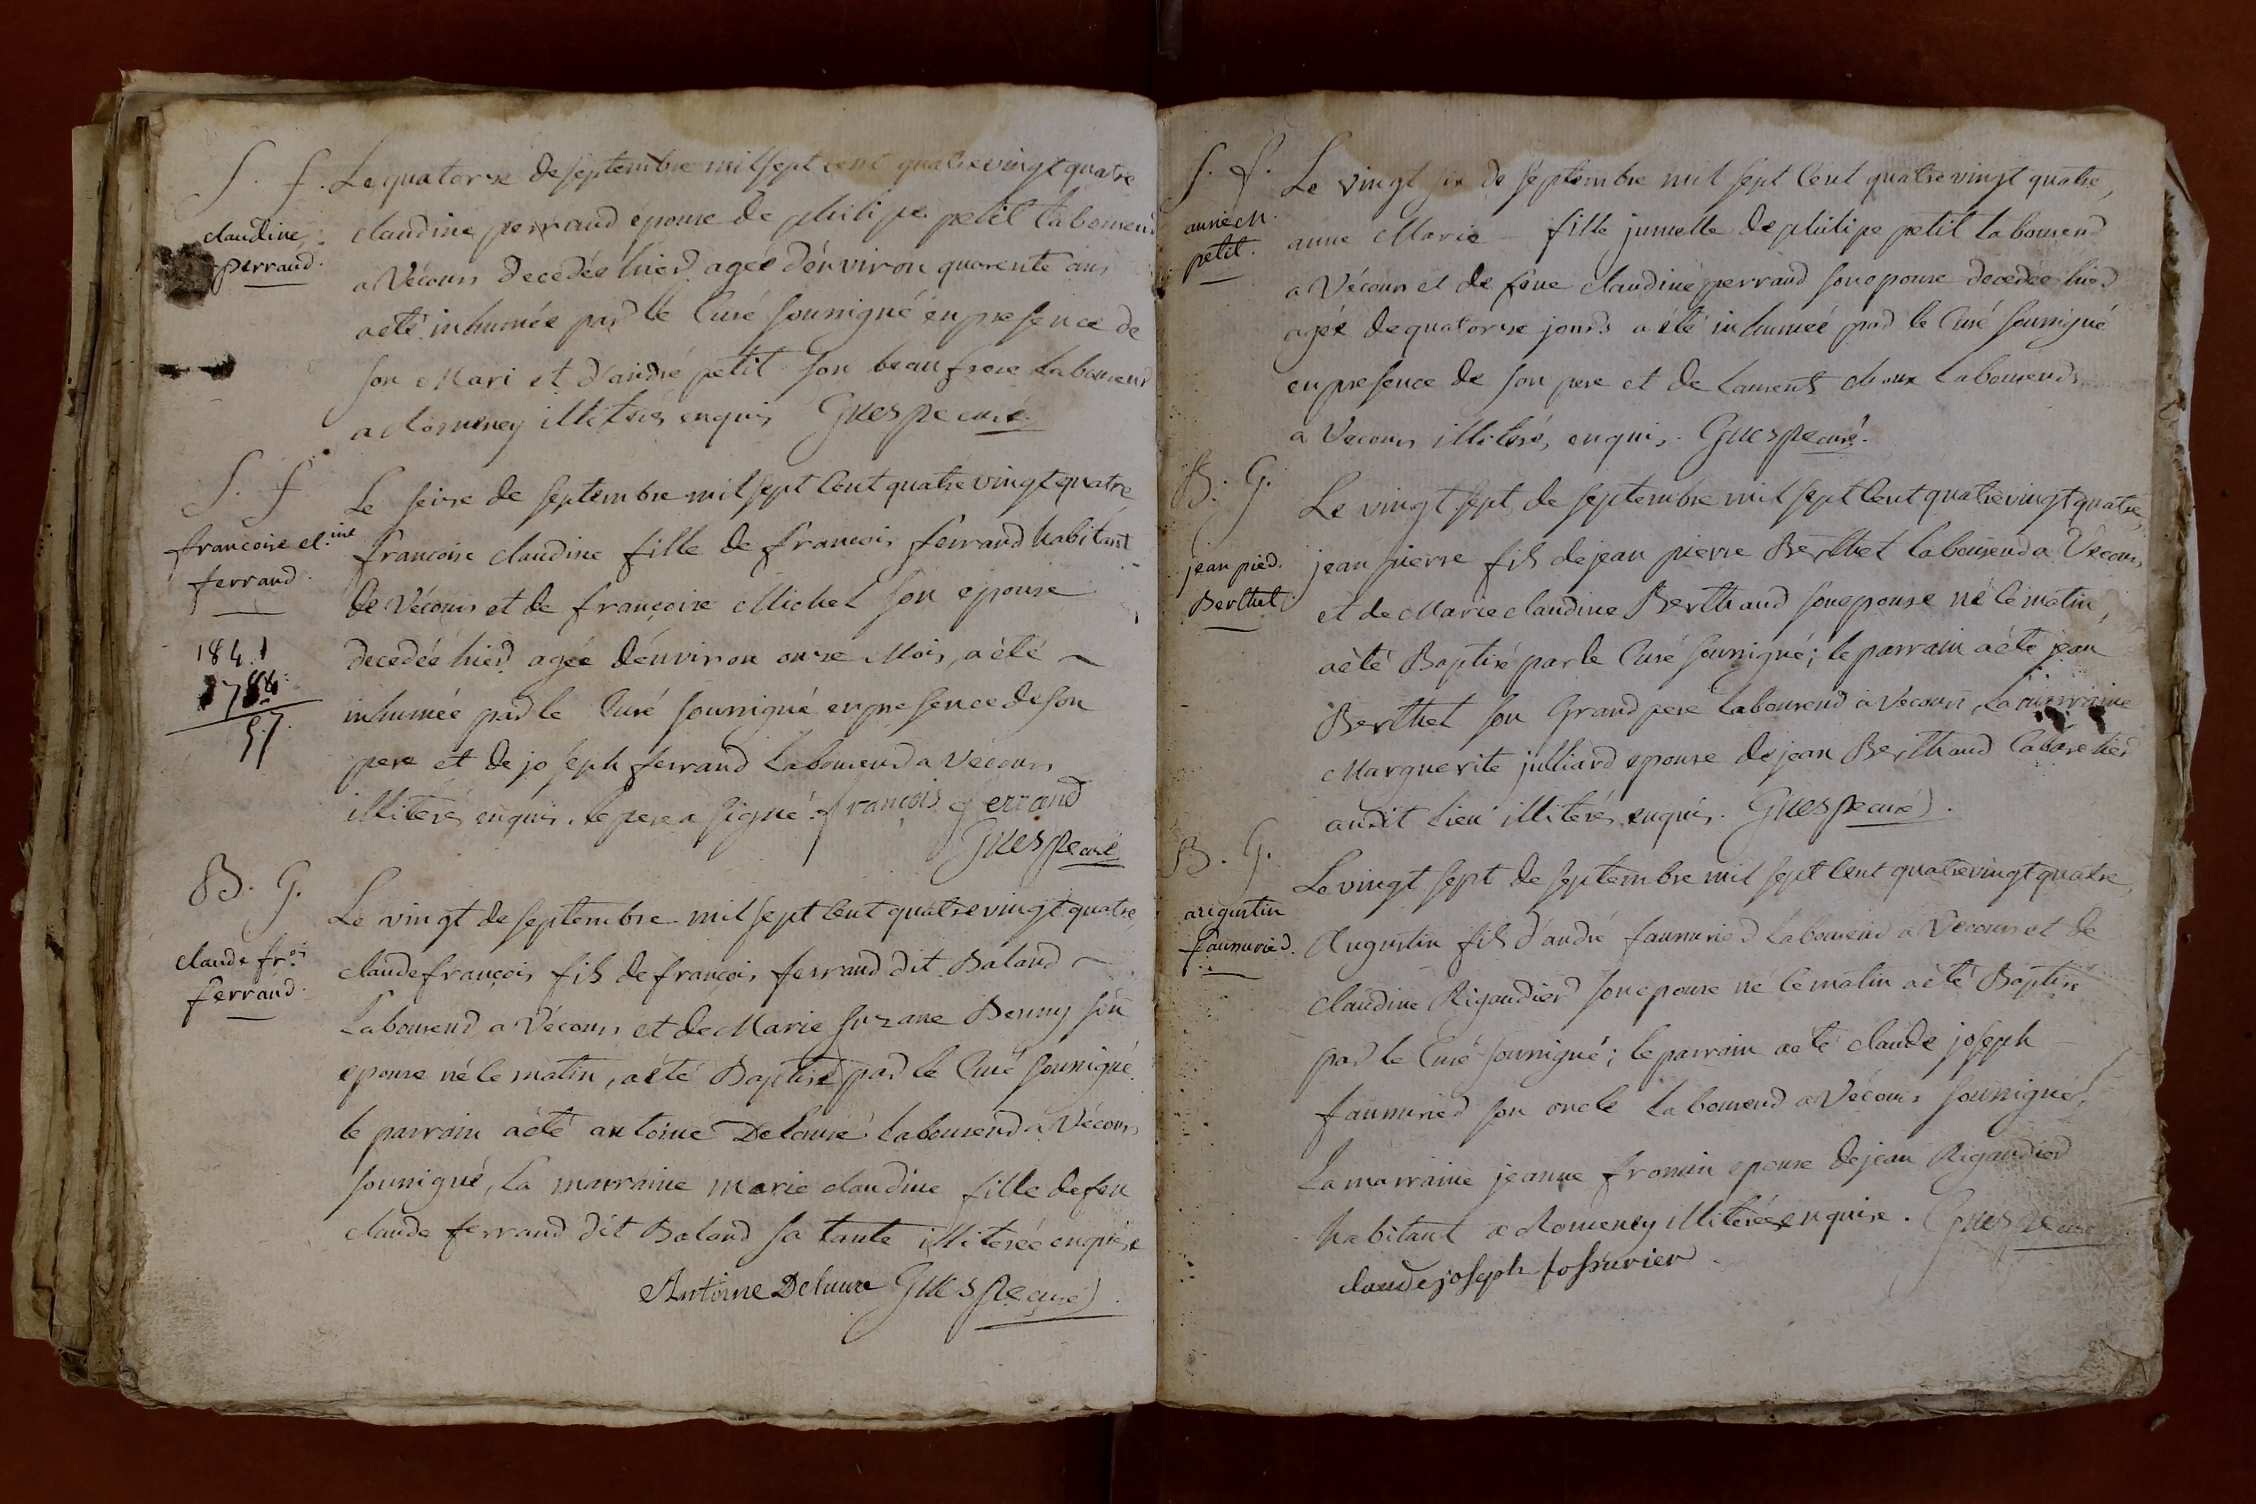 S. f.
claudine
perrand.
Le quatorze de septembre mil sept cent quatre vingt quatre
claudine perrand épouse de philipe petit laboureur
a Vécours decedée hier agée d'énviron quarente ans
a eté inhumée par le Curé soussigné en presence de
son Mari et d'andré petit son beau frere laboureur
a Romeney illiterés enquis Guespe curé.
S. f
francoise cl.ine
ferrand.
1841
1784
57.
Le seize de septembre mil sept cent quatre vingt quatre,
francoise claudine fille de francois ferrand habitant
de Vécours et de françoise Michel son epouse
decedée hier agée d'énviron onze Mois, a été
inhumée par le Curé soussigné en presence de son
pere et de joseph ferrand laboureur a Vécours
illiterés enquis. le pere a signé. françois ferrand
Guespe curé
B. G.
claude fr.ois
ferrand.
Le vingt de septembre mil sept cent quatre vingt quatre,
claude françois fils de francois ferrand dit Baland
laboureur a Vécours et de Marie suzane Benny son
epouse né le matin, a été Baptisé par le Curé soussigné.
le parrain a été antoine Delaure laboureur a Vécours
soussigné, la marraine marie claudine fille de feu
claude ferrand dit Baland sa tante illiterée enquise
Antoine Delaure Guespe curé
S. f.
anne M.
petit.
Le vingt six de septembre mil sept cent quatre vingt quatre,
anne Marie fille jumelle de philipe petit laboureur
a Vécours et de féue claudine perrand son epouse decedée hier
agée de quatorze jours a été inhumée par le Curé soussigné
en presence de son pere et de laurent choux laboureurs
a Vecours illiterés, enquis. Guespe curé.
B. G.
jean pier.
Berthet.
Le vingt sept de septembre mil sept cent quatre vingt quatre,
jean pierre fils de jean pierre Berthet laboureur a Vécours
et de Marie claudine Berthaud son epouse né le matin,
a été Baptisé par le Curé soussigné; le parrain a été jean
Berthet son Grand pere laboureur a Vecours, la marraine
Marguerite julliard epouse de jean Berthaud Cabaretier
audit lieu illiterés enquis. Guespe curé.
B. G.
augustin
faussurier.
Le vingt sept de septembre mil sept cent quatre vingt quatre,
Augustin fils d'andré faussurier laboureur a Vécours et de
claudine Rigaudier son epouse né le matin a été Baptisé
par le Curé soussigné; le parrain a été claude joseph
faussurier son oncle laboureur a Vécours soussigné,
la marraine jeanne fromin epouse de jean Rigaudier
habitant a Romeney illiterée enquise. Guespe curé
claude joseph fossurier